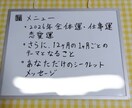 メニュー
・2026年 全体運・仕事運
恋愛運
・さらに、12ヶ月の1ヶ月ごとの
テーマとなること
・あなただけのシークレット
メッセージ